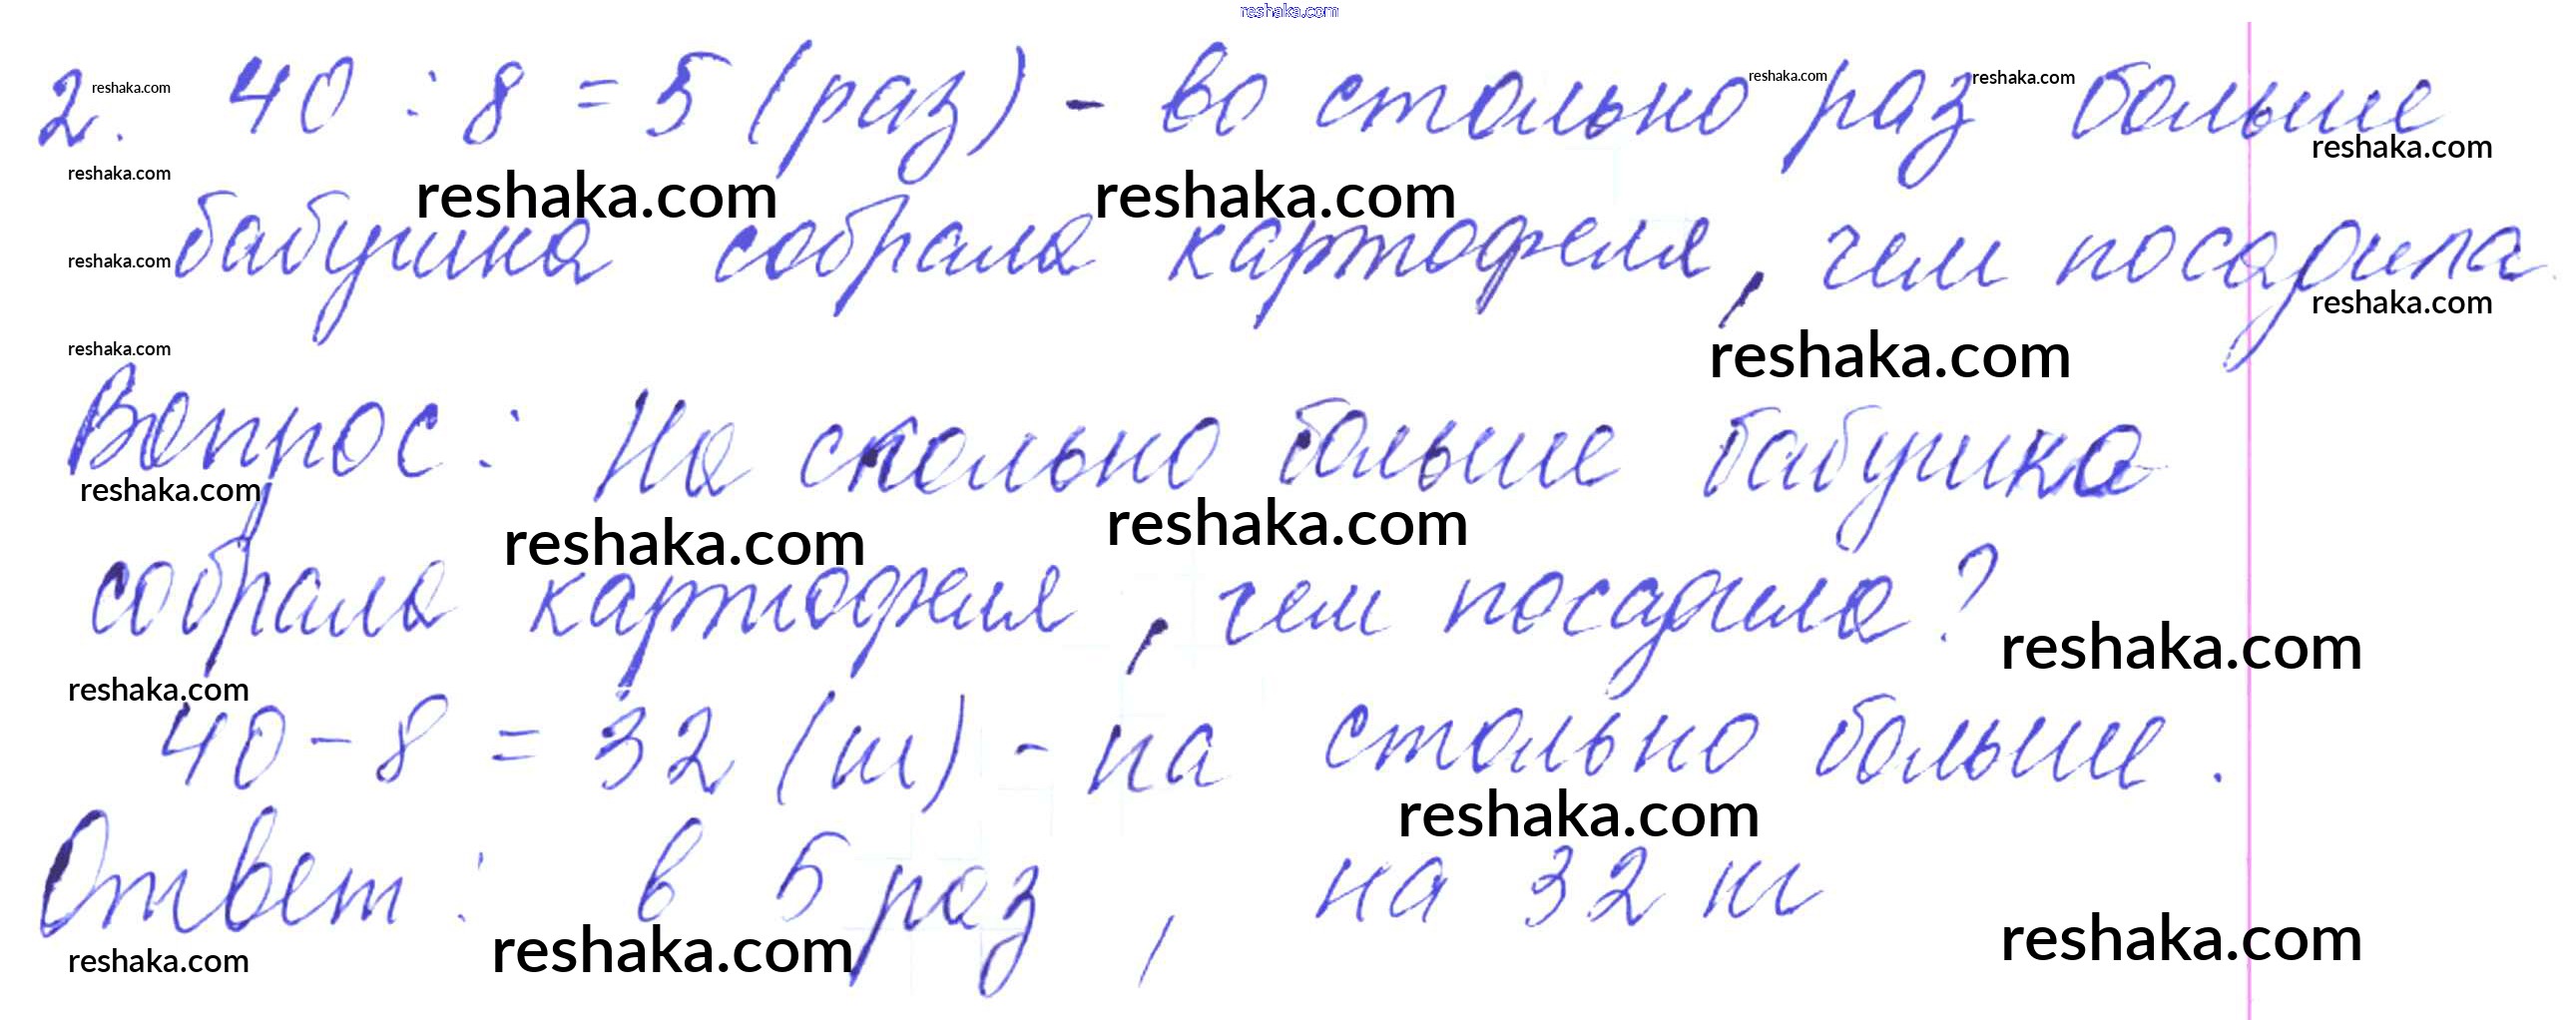 reshaka.com
2. reshaka.com 40 : 8 = 5 (раз) - во столько reshaka.com раз reshaka.com больше
reshaka.com reshaka.com reshaka.com reshaka.com
reshaka.com бабушка собрала картофеля, чем посадила.
reshaka.com reshaka.com reshaka.com
Вопрос: На сколько больше бабушка
reshaka.com reshaka.com reshaka.com
собрала картофеля, чем посадила? reshaka.com
reshaka.com
40 - 8 = 32 (кг) - на столько больше.
reshaka.com
Ответ: в 5 раз, на 32 кг
reshaka.com reshaka.com reshaka.com